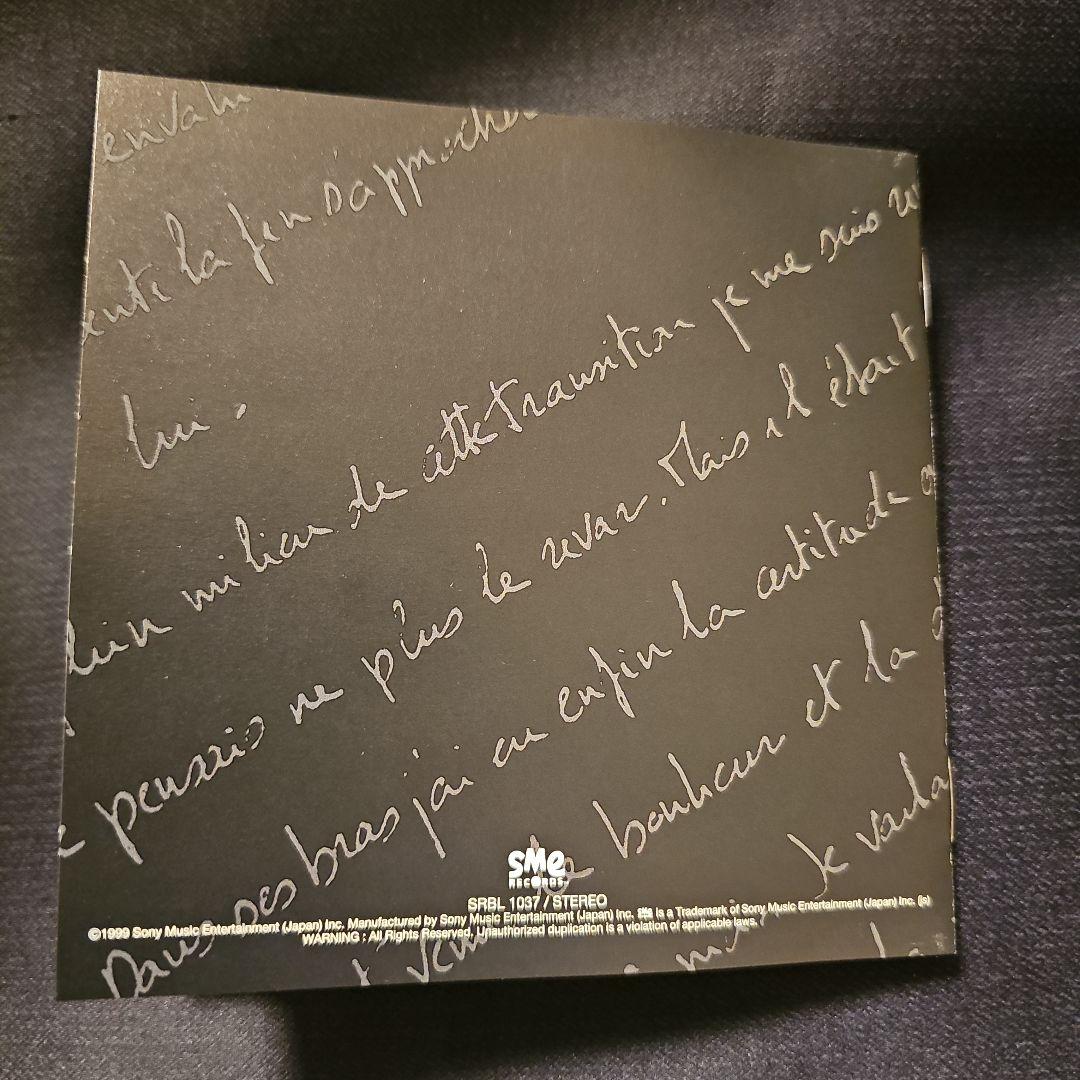 envahi
senti la fin s'approcher
lui.
au milieu de cette transition je me suis
pensais ne plus le revoir. Mais il était
Dans ses bras j'ai eu enfin la certitude
le bonheur et la
Je voula
sme
RECORDS
SRBL 1037 / STEREO
©1999 Sony Music Entertainment (Japan) Inc. Manufactured by Sony Music Entertainment (Japan) Inc. sme is a Trademark of Sony Music Entertainment (Japan) Inc. (js)
WARNING : All Rights Reserved, Unauthorized duplication is a violation of applicable laws.